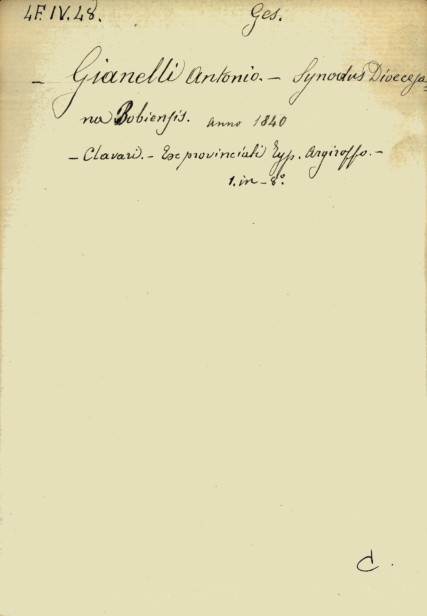 4F. IV. 48. Ges.
– Gianelli Antonio. – Synodus Dioecesa=
na Bobiensis. anno 1840
– Clavari. – Ex provinciali Typ. Argiroffo. –
1. in – 8.°
C.